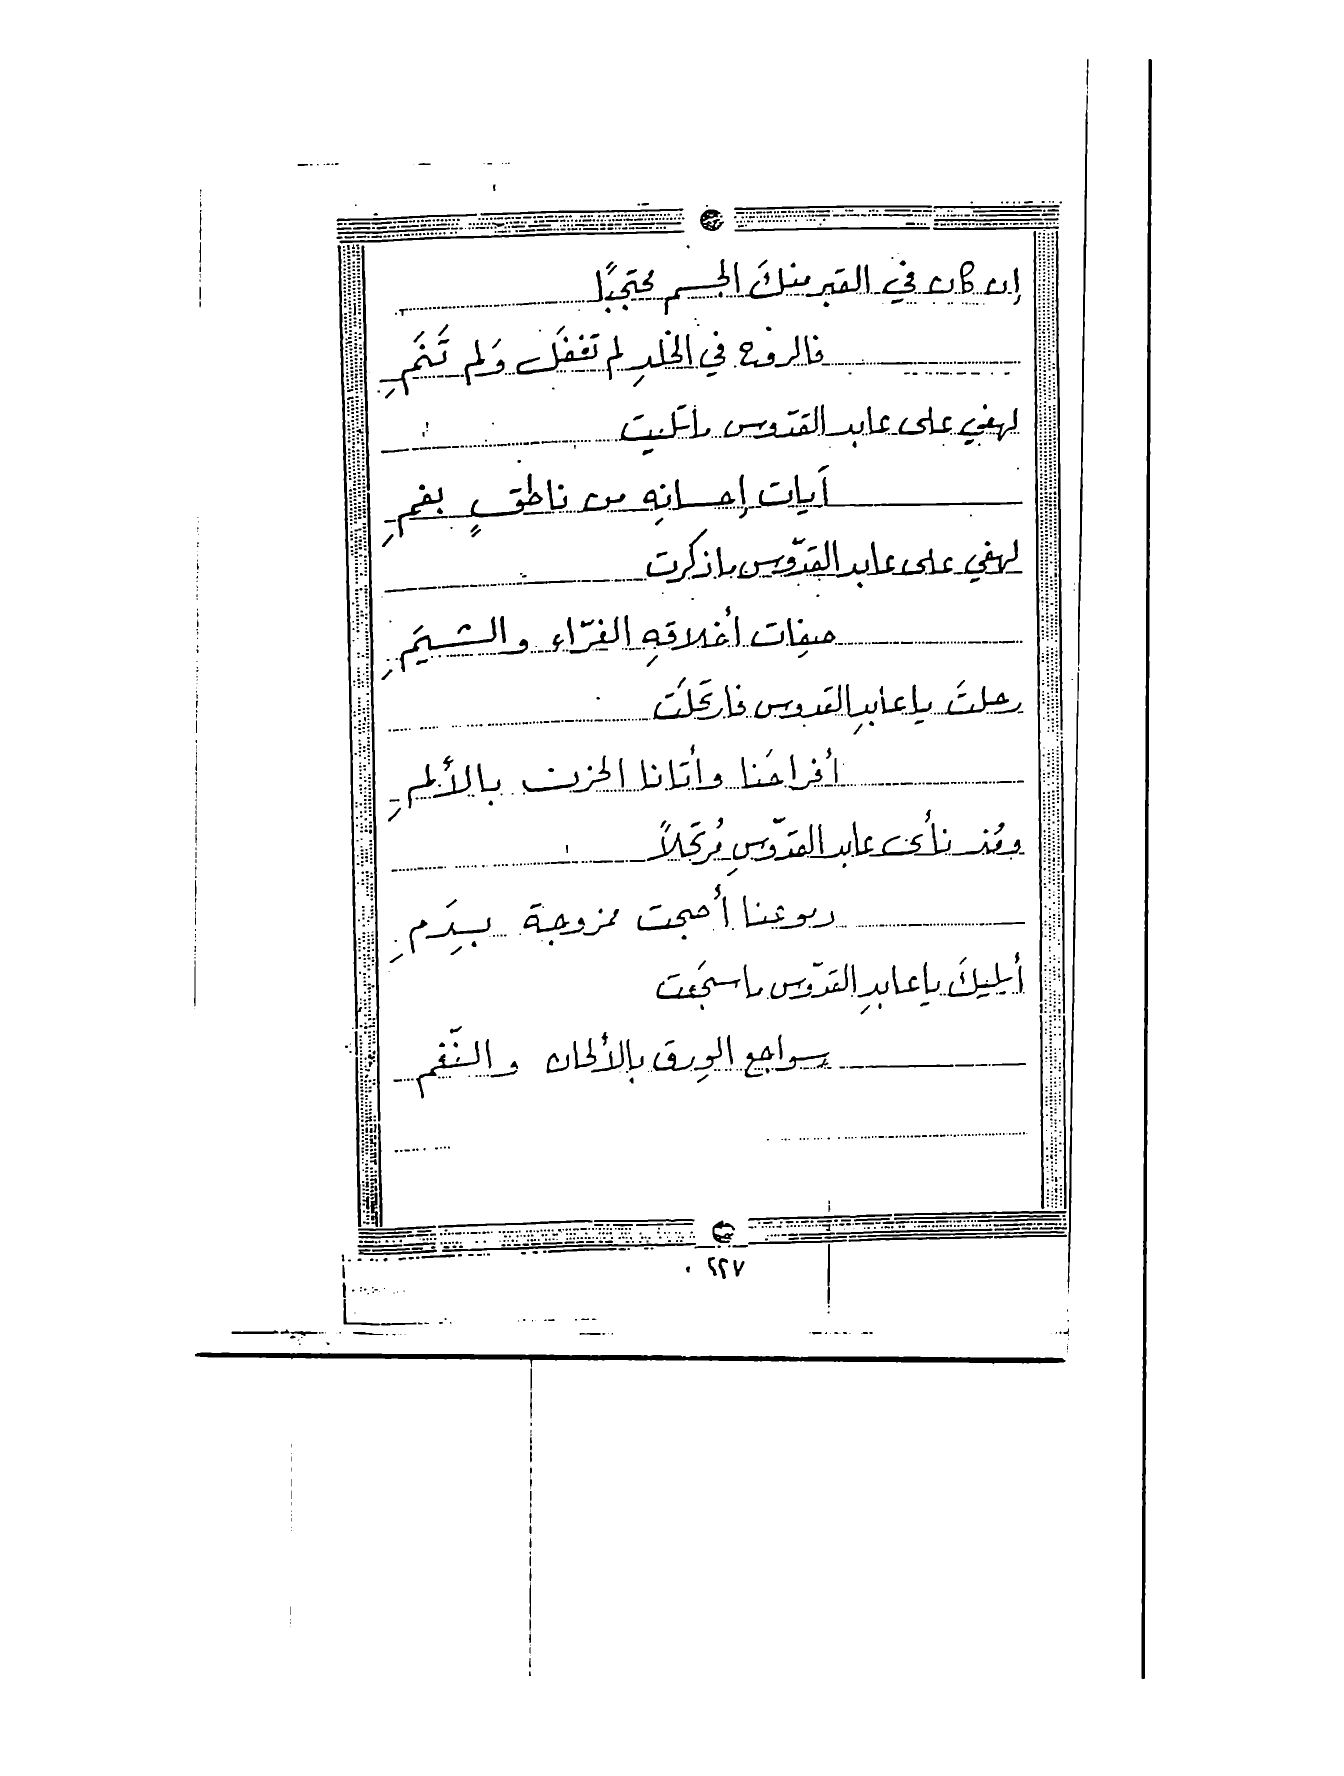 إن كان في القبر منكَ الجسم محتجبًا
فالروح في الخلدِ لم تغفلَ وَلم تَنَمِ
لهفي على عابد القدّوس ما تُليت
آيات إحسانهِ من ناطقٍ بفمِ
لهفي على عابد القدّوس ما ذكرت
صفات أخلاقهِ الغرّاء والشيَمِ
رحلتَ يا عابدِ القدوس فارتحَلَت
أفراحَنا وأتانا الحزن بالألمِ
ومُذ نأى عابد القدّوسِ مُرتحَلاً
ربوعنا أصبحت ممزوجة بِدَمِ
أبليكَ يا عابدِ القدّوس ما سجَعت
سواجع الوِرق بالألحان والنّغم
٢٢٧